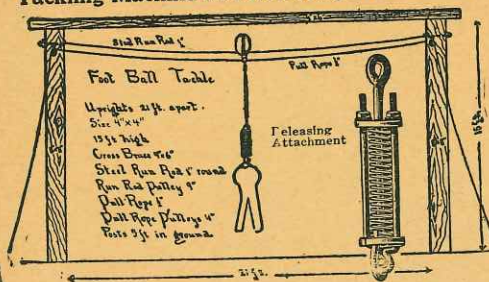 Steel Run Rod 1"
Pull Rope 1"
Foot Ball Tackle
Uprights 21 ft. apart.
Size 4"x4"
15 ft high
Cross Brace
Steel Run Rod 1" round
Run Rod Pulley 9"
Pull Rope 1"
Pull Rope Pulleys 4"
Posts 3 ft in ground
Releasing
Attachment
15 ft.
21 ft.